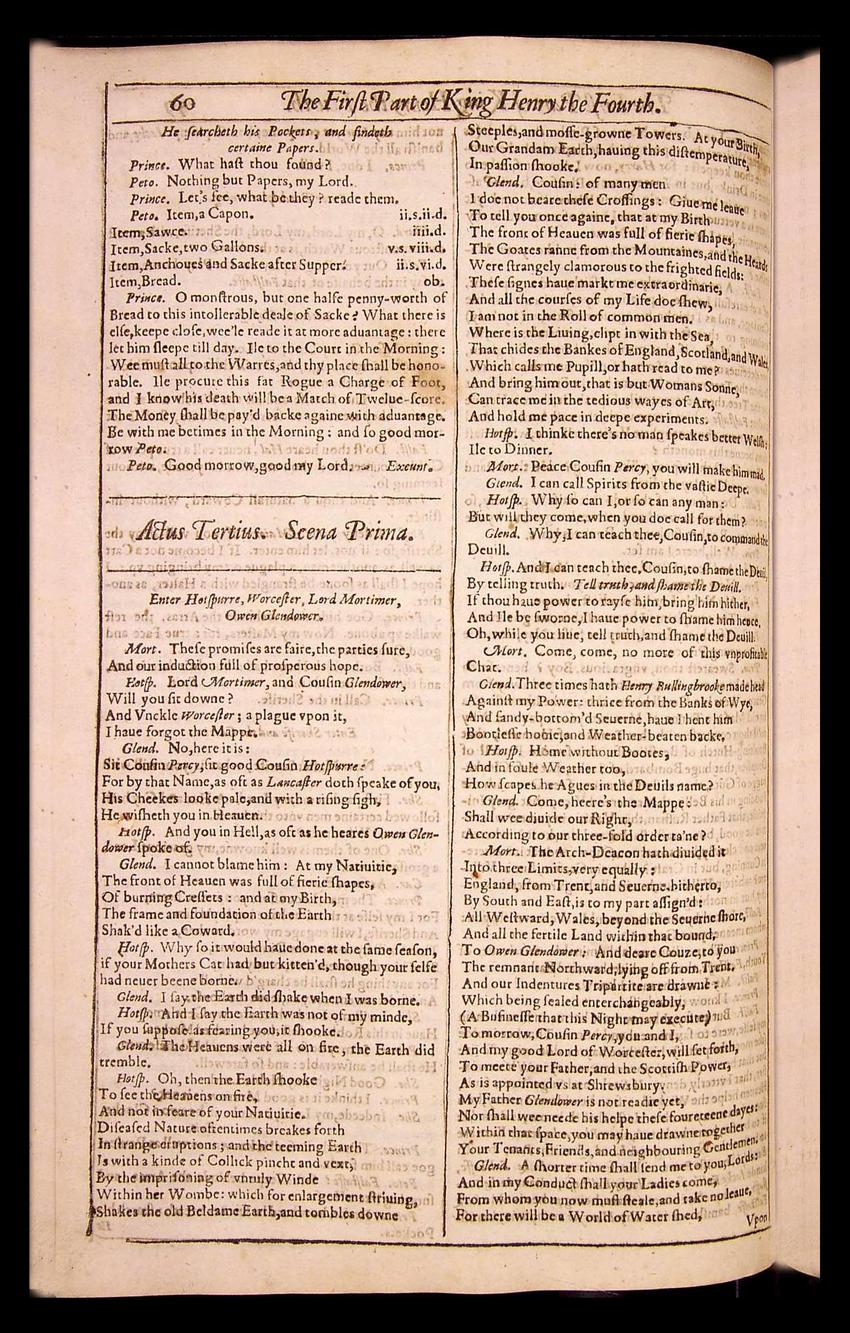 60 The First Part of King Henry the Fourth.
He searcheth his Pockets, and findeth
certaine Papers.
Prince. What hast thou found?
Peto. Nothing but Papers, my Lord.
Prince. Let's see, what be they? reade them.
Peto. Item, a Capon. ii.s.ii.d.
Item, Sawce. iiii.d.
Item, Sacke, two Gallons. v.s.viii.d.
Item, Anchoues and Sacke after Supper. ii.s.vi.d.
Item, Bread. ob.
Prince. O monstrous, but one halfe penny-worth of
Bread to this intollerable deale of Sacke? What there is
else, keepe close, wee'le reade it at more aduantage: there
let him sleepe till day. Ile to the Court in the Morning:
Wee must all to the Warres, and thy place shall be hono-
rable. Ile procure this fat Rogue a Charge of Foot,
and I know his death will be a Match of Twelue-score.
The Money shall be pay'd backe againe with aduantage.
Be with me betimes in the Morning: and so good mor-
row Peto.
Peto. Good morrow, good my Lord. Exeunt.
Actus Tertius. Scena Prima.
Enter Hotspurre, Worcester, Lord Mortimer,
Owen Glendower.
Mort. These promises are faire, the parties sure,
And our induction full of prosperous hope.
Hotsp. Lord Mortimer, and Cousin Glendower,
Will you sit downe?
And Vnckle Worcester; a plague vpon it,
I haue forgot the Mappe.
Glend. No, here it is:
Sit Cousin Percy, sit good Cousin Hotspurre:
For by that Name, as oft as Lancaster doth speake of you,
His Cheekes looke pale, and with a rising sigh,
He wisheth you in Heauen.
Hotsp. And you in Hell, as oft as he heares Owen Glen-
dower spoke of.
Glend. I cannot blame him: At my Natiuitie,
The front of Heauen was full of fierie shapes,
Of burning Cressets: and at my Birth,
The frame and foundation of the Earth
Shak'd like a Coward.
Hotsp. Why so it would haue done at the same season,
if your Mothers Cat had but kitten'd, though your selfe
had neuer beene borne.
Glend. I say the Earth did shake when I was borne.
Hotsp. And I say the Earth was not of my minde,
If you suppose, as fearing you, it shooke.
Glend. The Heauens were all on fire, the Earth did
tremble.
Hotsp. Oh, then the Earth shooke
To see the Heauens on fire,
And not in feare of your Natiuitie.
Diseased Nature oftentimes breakes forth
In strange eruptions; and the teeming Earth
Is with a kinde of Collick pincht and vext,
By the imprisoning of vnruly Winde
Within her Wombe: which for enlargement striuing,
Shakes the old Beldame Earth, and tombles downe
Steeples, and mosse-growne Towers. At your Birth,
Our Grandam Earth, hauing this distemperature,
In passion shooke.
Glend. Cousin: of many men
I doe not beare these Crossings: Giue me leaue
To tell you once againe, that at my Birth
The front of Heauen was full of fierie shapes,
The Goates ranne from the Mountaines, and the Heards
Were strangely clamorous to the frighted fields:
These signes haue markt me extraordinarie,
And all the courses of my Life doe shew,
I am not in the Roll of common men.
Where is the Liuing, clipt in with the Sea,
That chides the Bankes of England, Scotland, and Wales,
Which calls me Pupill, or hath read to me?
And bring him out, that is but Womans Sonne,
Can trace me in the tedious wayes of Art,
And hold me pace in deepe experiments.
Hotsp. I thinke there's no man speakes better Welsh:
Ile to Dinner.
Mort. Peace Cousin Percy, you will make him mad.
Glend. I can call Spirits from the vastie Deepe.
Hotsp. Why so can I, or so can any man:
But will they come, when you doe call for them?
Glend. Why, I can teach thee, Cousin, to command the
Deuill.
Hotsp. And I can teach thee, Cousin, to shame the Deuil,
By telling truth. Tell truth, and shame the Deuill.
If thou haue power to rayse him, bring him hither,
And Ile be sworne, I haue power to shame him hence.
Oh, while you liue, tell truth, and shame the Deuill.
Mort. Come, come, no more of this vnprofitable
Chat.
Glend. Three times hath Henry Bullingbrooke made head
Against my Power: thrice from the Banks of Wye,
And sandy-bottom'd Seuerne, haue I hent him
Bootlesse home, and Weather-beaten backe.
Hotsp. Home without Bootes,
And in foule Weather too,
How scapes he Agues in the Deuils name?
Glend. Come, heere's the Mappe:
Shall wee diuide our Right,
According to our three-fold order ta'ne?
Mort. The Arch-Deacon hath diuided it
Into three Limits, very equally:
England, from Trent, and Seuerne. hitherto,
By South and East, is to my part assign'd:
All Westward, Wales, beyond the Seuerne shore,
And all the fertile Land within that bound,
To Owen Glendower: And deare Couze, to you
The remnant Northward, lying off from Trent.
And our Indentures Tripartite are drawne:
Which being sealed enterchangeably,
(A Businesse that this Night may execute)
To morrow, Cousin Percy, you and I,
And my good Lord of Worcester, will set forth,
To meete your Father, and the Scottish Power,
As is appointed vs at Shrewsbury.
My Father Glendower is not readie yet,
Nor shall wee neede his helpe these foureteene dayes:
Within that space, you may haue drawne together
Your Tenants, Friends, and neighbouring Gentlemen.
Glend. A shorter time shall send me to you, Lords:
And in my Conduct shall your Ladies come,
From whom you now must steale, and take no leaue,
For there will be a World of Water shed,
Vpon